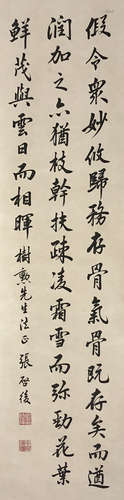 假令衆妙攸歸務存骨氣骨既存矣而遒
潤加之亦猶枝幹扶疎凌霜雪而弥勁花葉
鮮茂與雲日而相暉 樹勳先生法正 張啓後